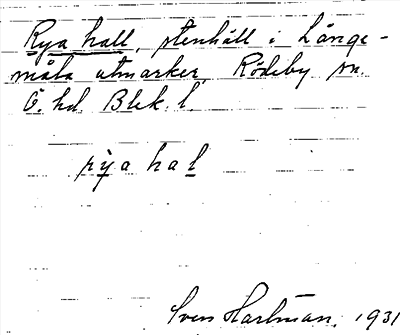 Rya hall, stenhäll i Långe-
måla utmarker, Rödeby sn.
Ö. hd. Blek. l.
rya hal
Sven Hartman. 1931